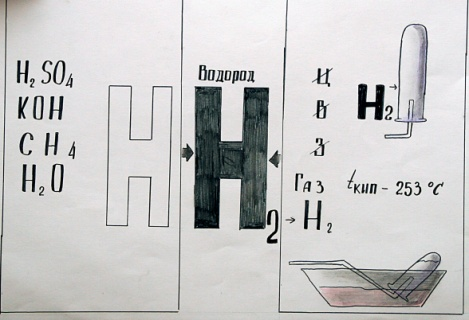 H₂SO₄
KOH
CH₄
H₂O
H
Водород
H₂
Ц
В
З
Газ
H₂
H₂
tкип - 253 °C